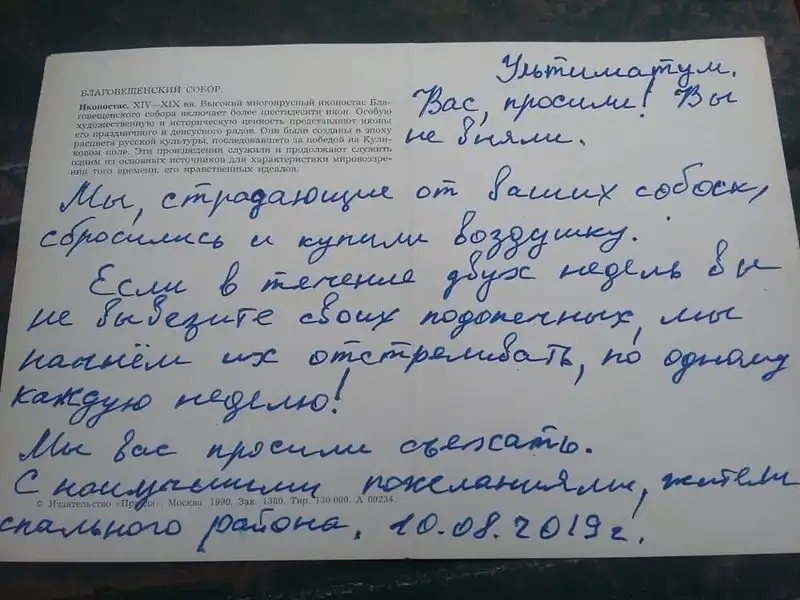 БЛАГОВЕЩЕНСКИЙ СОБОР.
Иконостас. XIV—XIX вв. Высокий многоярусный иконостас Бла-
говещенского собора включает более шестидесяти икон. Особую
художественную и историческую ценность представляют иконы
его праздничного и деисусного рядов. Они были созданы в эпоху
расцвета русской культуры, последовавшего за победой на Кули-
ковом поле. Эти произведения служили и продолжают служить
одним из основных источников для характеристики мировоззре-
ния того времени, его нравственных идеалов.
Ультиматум.
Вас, просили! Вы
не вняли.
Мы, страдающие от ваших собоск,
сбросились и купили воздушку.
Если в течение двух недель вы
не вывезите своих подопечных, мы
начнём их отстреливать, по одному
каждую неделю!
Мы вас просили съехать.
С наилучшими пожеланиями, жители
© Издательство «Правда». Москва 1990. Зак. 1380. Тир. 130 000. А 00234.
спального района. 10.08.2019г.